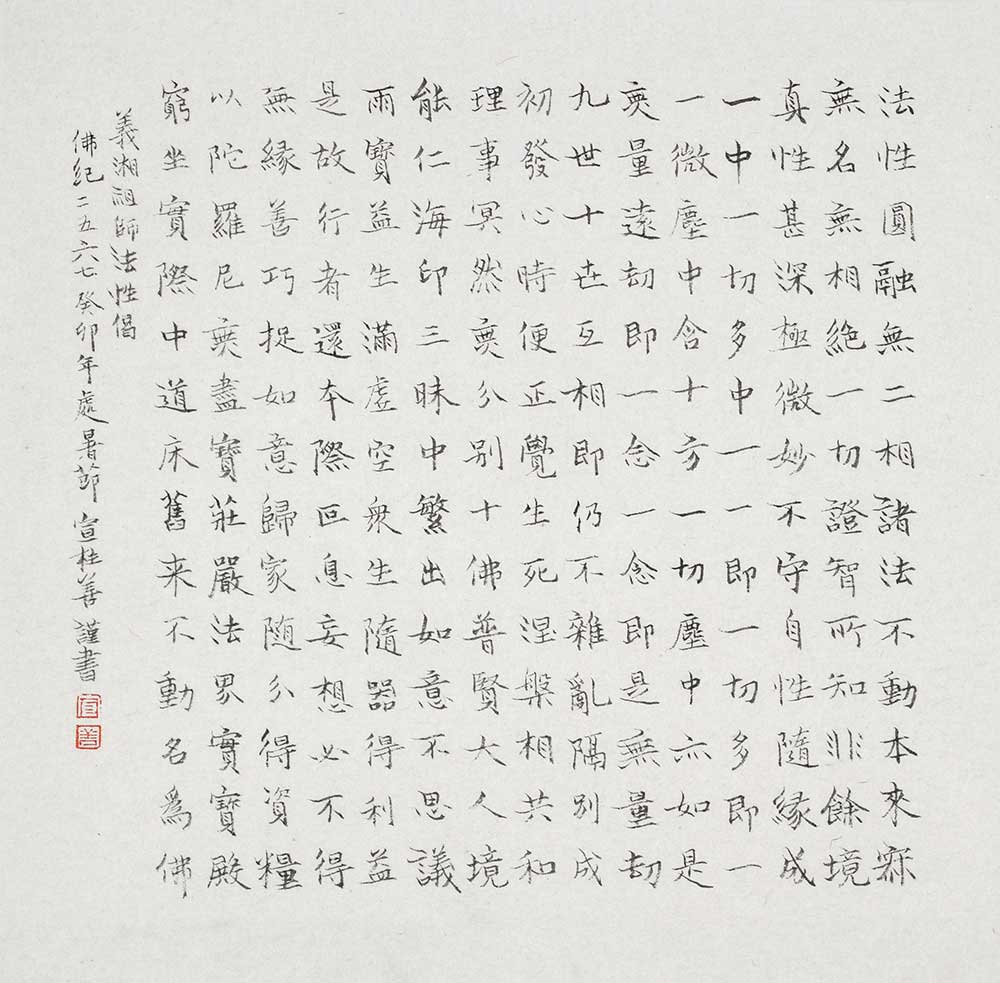 法性圓融無二相諸法不動本來寂
無名無相絶一切證智所知非餘境
真性甚深極微妙不守自性隨緣成
一中一切多中一一即一切多即一
一微塵中含十方一切塵中亦如是
無量遠劫即一念一念即是無量劫
九世十世互相即仍不雜亂隔別成
初發心時便正覺生死涅槃相共和
理事冥然無分別十佛普賢大人境
能仁海印三昧中繁出如意不思議
雨寶益生滿虛空衆生隨器得利益
是故行者還本際叵息妄想必不得
無緣善巧捉如意歸家随分得資糧
以陀羅尼無盡寶莊嚴法界實寶殿
窮坐實際中道床舊来不動名爲佛
義湘祖師法性偈
佛紀二五六七癸卯年處暑節 宣桂善謹書
宣
善